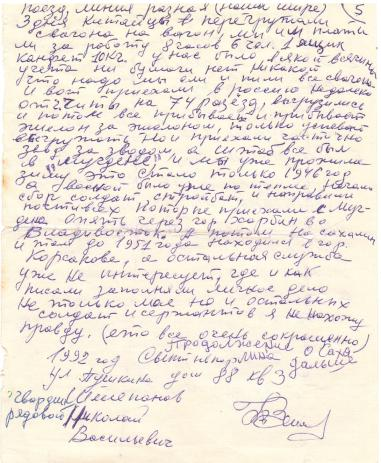 поезд, линия разная (наша шире) 5
Здеся китайцы и перегружали
с вагона на вагон, мы им плати
ли за работу 8 часов 6 чел. 1 ящик
конфет 10 кг. у нас было всякое всячины
учета ни бумаги нет никакой
что надо мы ели и пили все свагона
И вот приехали в россию недалеко
от читы, на 74 разезд, выгрузились
и потом все прибывает и прибывает
эшелон за эшелоном, только успевай
выгружать но и приехали частично
звод за зводом, а штаб все был
в "Мугдене" и мы уже прожили
зиму это стало только 1946 год
а весной было уже по тепле, начали
сбор солдат стройбат, и направили
почти всех которые приехали с Муг
дена опять через гор Харбин во
Владивосток. А потом на сахалин
и там до 1951 года находился в гор.
Корсакове, а остальная служба
уже не интересует, где и как
писали заполняли личное дело
не только мое но и остальных
солдат и сержантов я не нахожу
правду. (ето все очень сокращенно)
Продолжение о
1992 год дальше
ул Пушкина дом 88 кв 30
гвардии Степанов
рядовой Николай
Васильевич